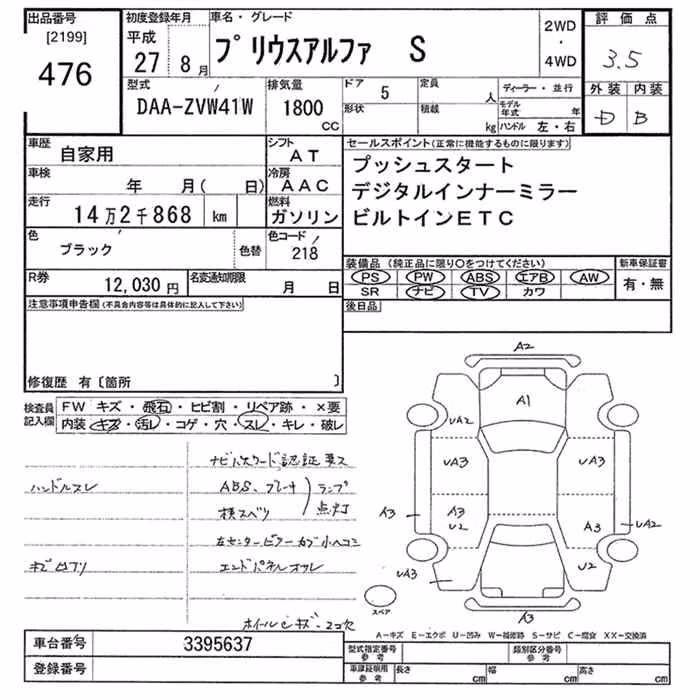 出品番号 初度登録年月 車名・グレード 2WD・4WD 評価点
[2199] 平成
476 27 8月 プリウスアルファ S 3.5
型式 排気量 ドア 5 定員 人 ディーラー・並行 外装 内装
DAA-ZVW41W 1800 CC 形状 積載 kg モデル年式 年 ハンドル 左・右 D B
車歴 自家用 シフト AT セールスポイント(正常に機能するものに限ります)
車検 年 月( 日) 冷房 AAC プッシュスタート
走行 14万2千868 km 燃料 ガソリン デジタルインナーミラー
ビルトインETC
色 ブラック 色替 色コード 218
装備品 (純正品に限り○をつけてください) 新車保証書
PS PW ABS エアB AW 有・無
SR ナビ TV カワ
R券 12,030円 名変通知期限 月 日
後日品
注意事項申告欄(不具合内容等は具体的に記入して下さい)
修復歴 有〔箇所 〕
検査員記入欄 FW キズ・飛石・ヒビ割・リペア跡・×要
内装・キズ・汚レ・コゲ・穴・スレ・キレ・破レ
ナビパスワード認証要ス
ハンドルスレ ABS、ブレーキ ランプ
横スベリ 点灯
左センターピラーカブ小ヘコミ
キズロブリ エンドパネルオツレ
ホイールキズ・ココ欠
A2
A1
UA2 A2
UA3 UA3
A3 A3 U2 A3 UA2
UA3 U2
スペア A3
A-キズ E-エクボ U-凹み W-補修跡 S-サビ C-腐食 XX-交換済
車台番号 3395637 型式指定番号 参考 類別区分番号 参考
登録番号 車庫証明用 参考 長さ cm 幅 cm 高さ cm